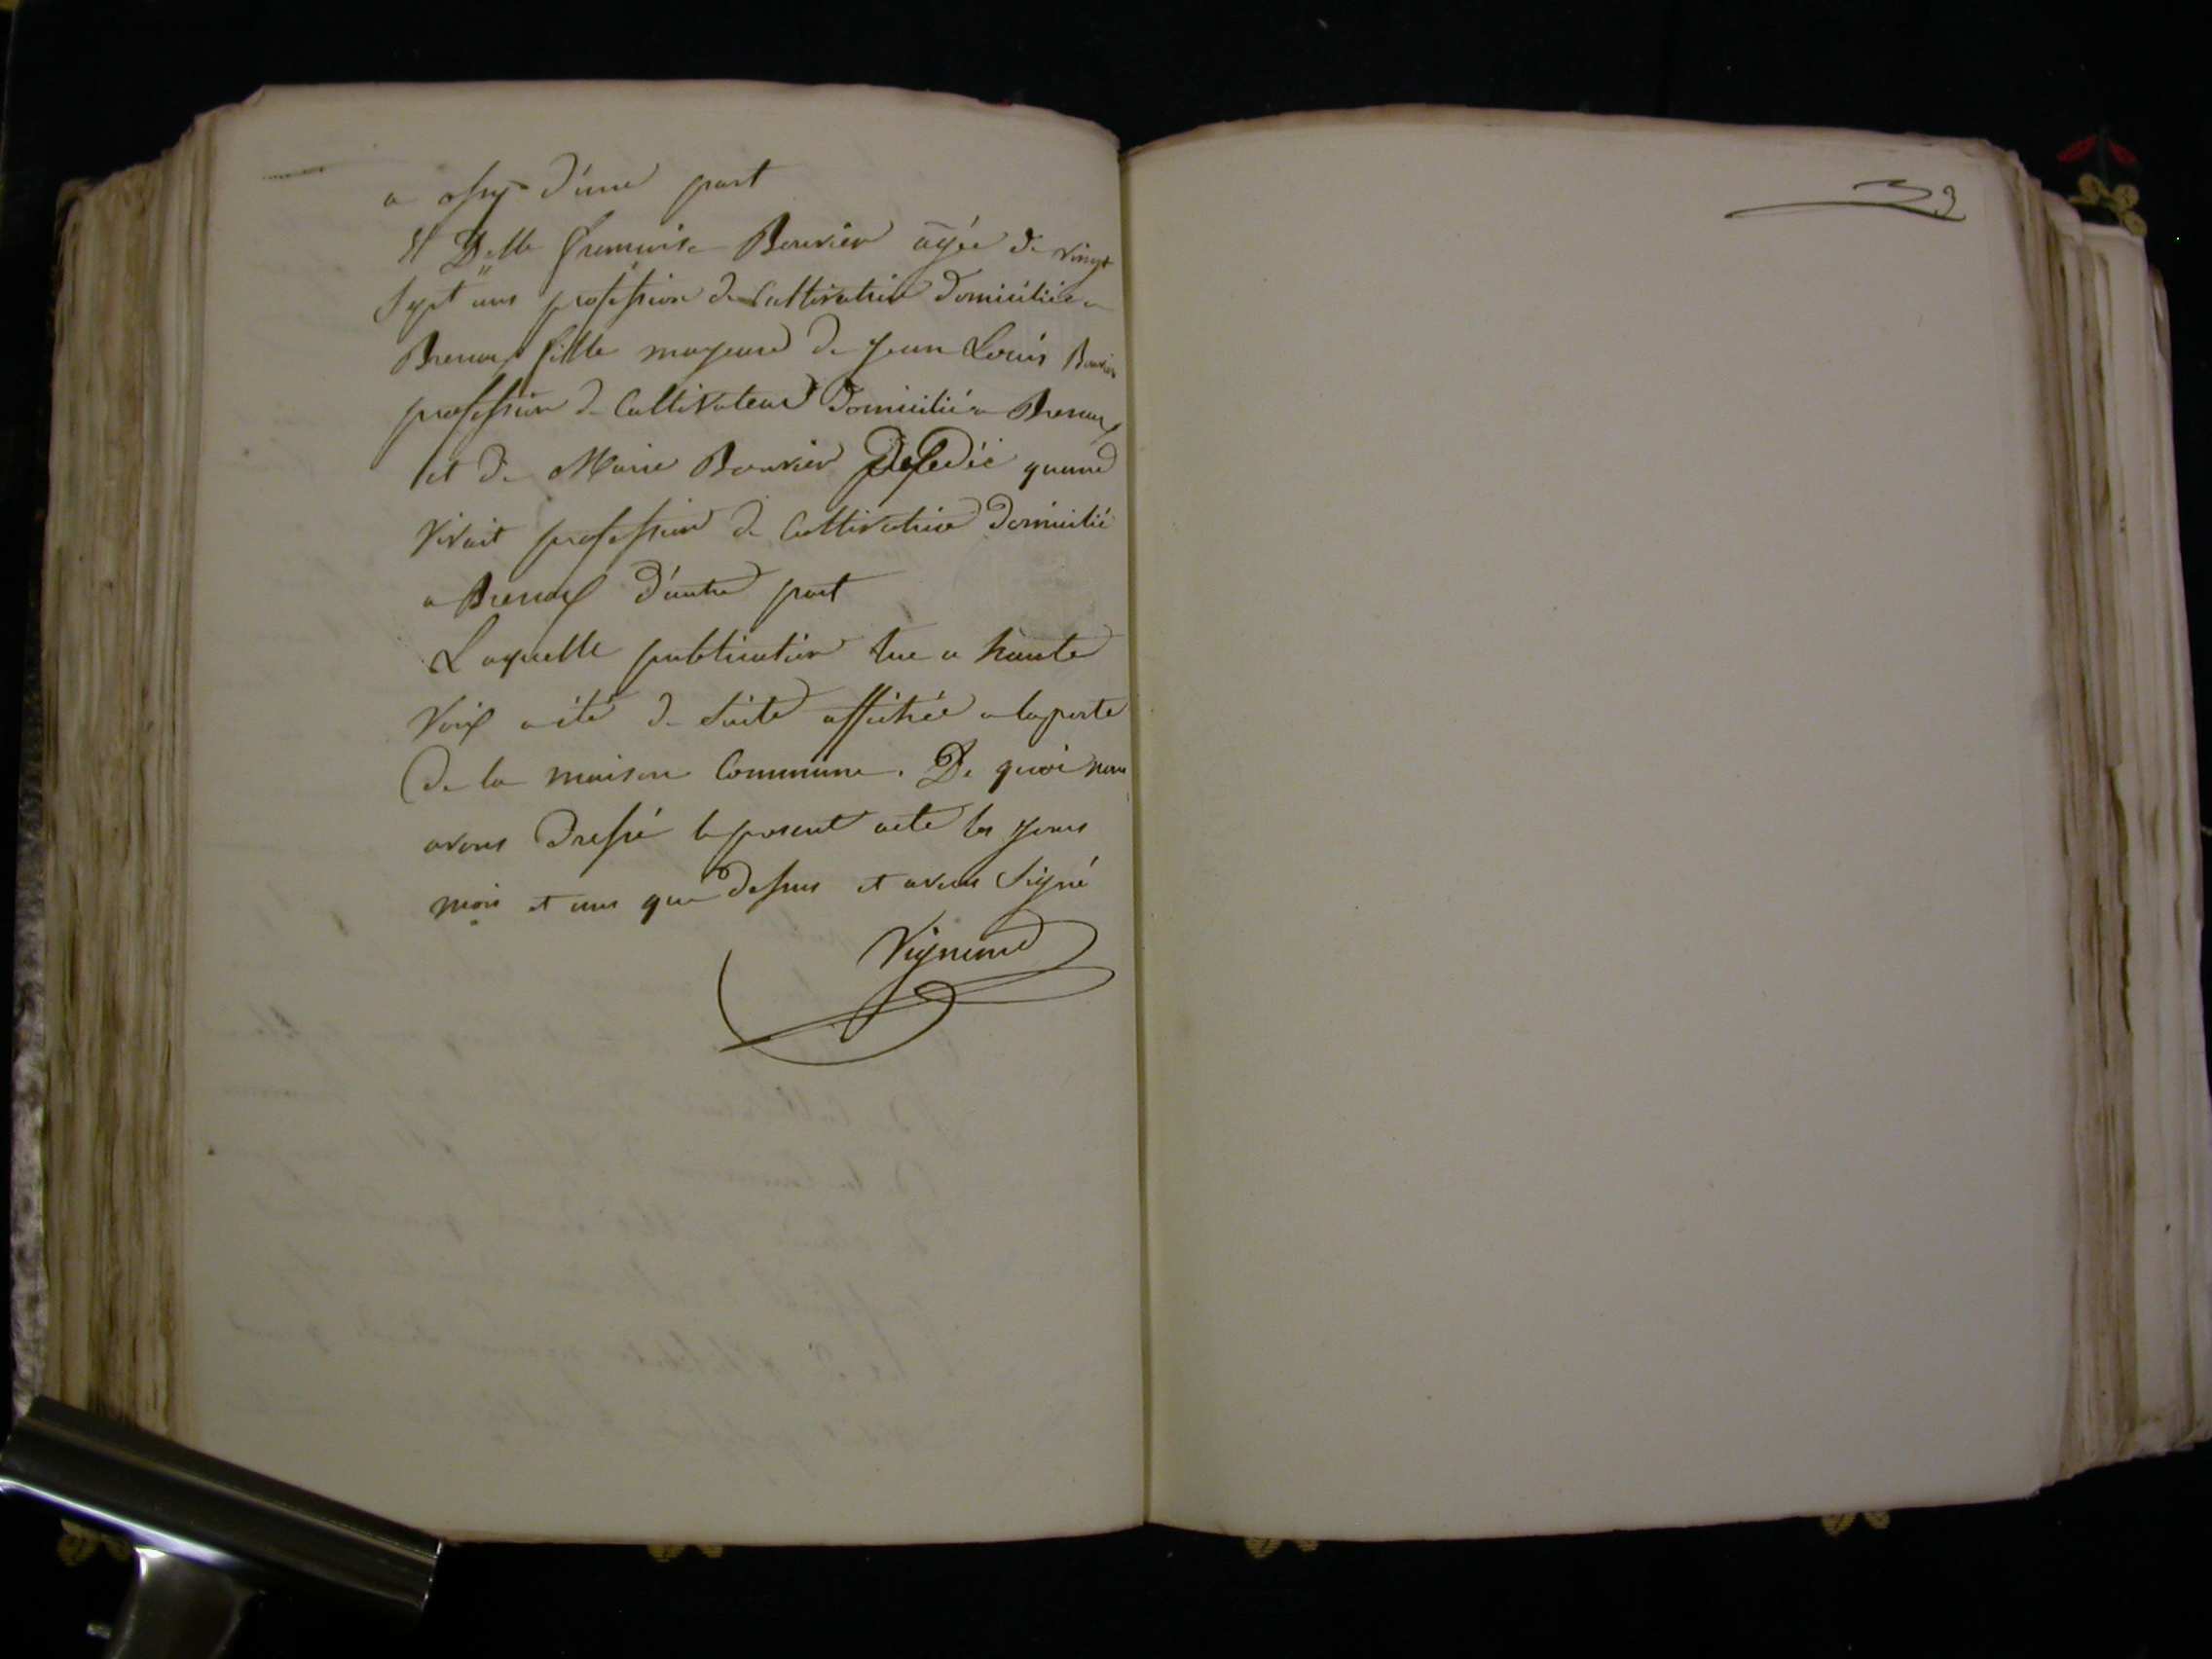 a ossy d'une part
Et Delle francoise Bouvier agée de vingt
Sept ans profession de Cultivatrice Domiciliée a
Brenax fille majeure de Jean Louis Bouvier
profession de Cultivateur Domicilié a Brenax
et de Marie Bouvier Desedée quand
Vivait profession de Cultivatrice Domicilié
a Brenax D'autre part
Laquelle publication lue a haute
Voix a été de suite affichée a la porte
De la maison Commune. De quoi nous
avons Dressé le present acte les jours
mois et ans que Dessus et avons Signé
Vignand